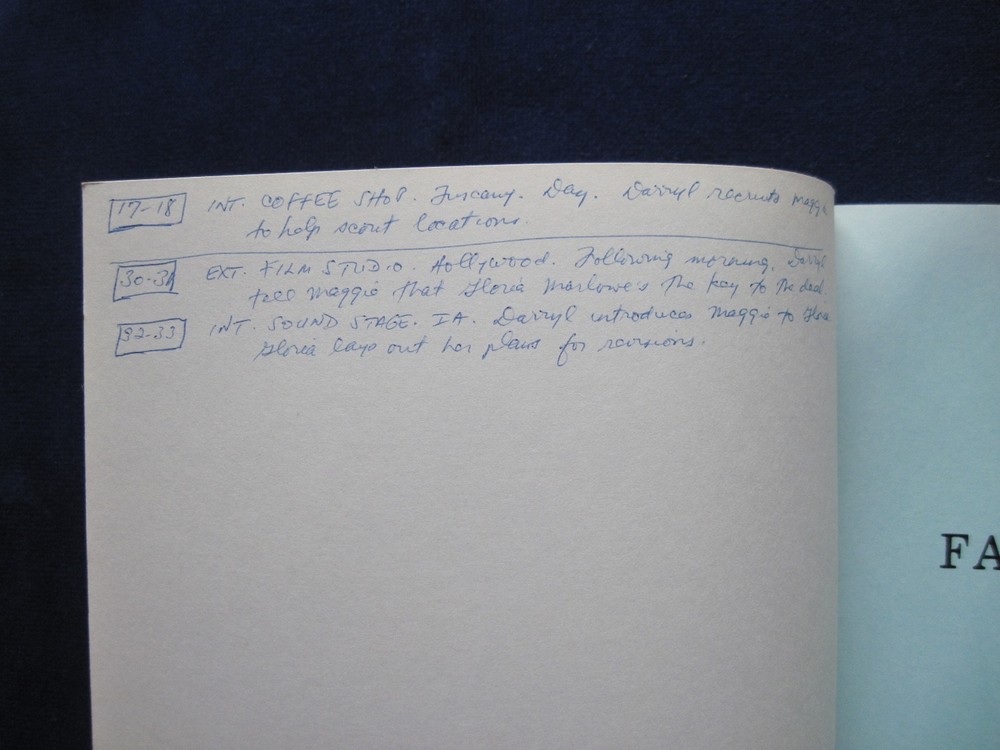 17-18 INT. COFFEE SHOP. Tuscany. Day. Darryl recruits Maggie
to help scout locations.
30-31 EXT. FILM STUDIO. Hollywood. Following morning. Darryl
tell Maggie that Gloria Marlowe's the key to the deal.
32-33 INT. SOUND STAGE. IA. Darryl introduces Maggie to Gloria
Gloria lays out her plans for revisions.
FA